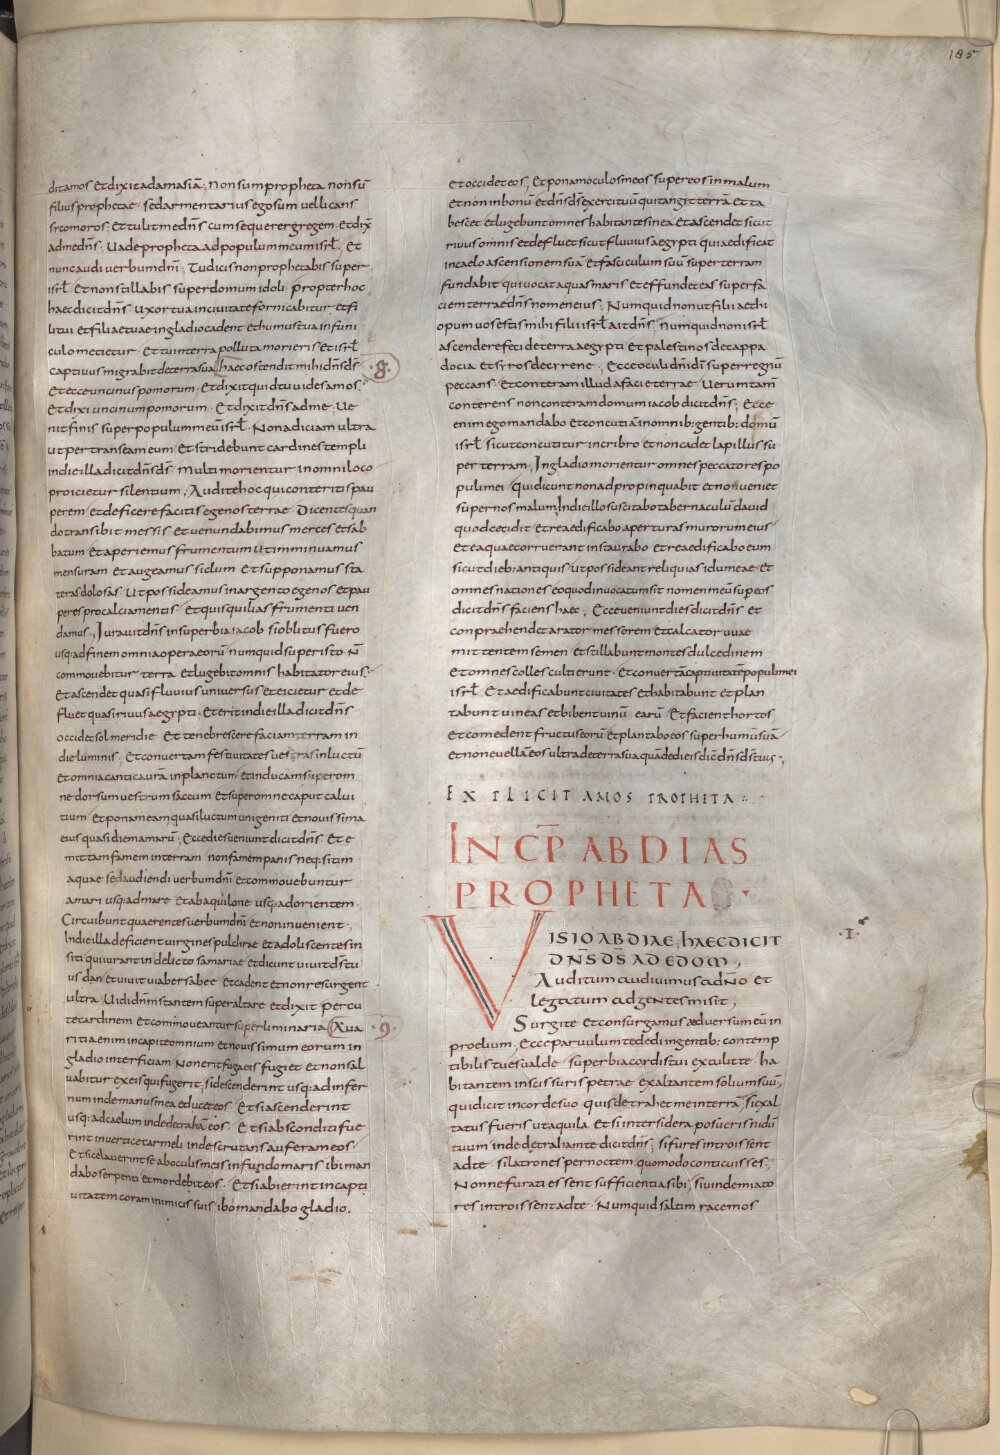 185
dit amos Et dixit ad amasiā; Non sum propheta non sū
filius prophetae sed armentarius ego sum vellicans
sycomoros; Et tulit me dn̄s cum sequerer gregem Et dix̄
ad me dn̄s; Vade propheta ad populum meum isrl̄. Et
nunc audi verbum dn̄i; Tu dicis non prophetabis super
isrl̄ Et non stillabis super domum idoli propter hoc
haec dicit dn̄s Uxor tua in civitate fornicabitur et fi
lii tui et filiae tuae in gladio cadent et humus tua in funi
culo metietur Et tu in terra polluta morieris et isrl̄
captivus migrabit de terra sua, haec ostendit mihi dn̄s ds̄
·8·
Et ecce uncinus pomorum; Et dixit quid tu vides amos;
Et dixi uncinum pomorum Et dixit dn̄s ad me; Ve
nit finis super populum meū isrl̄ Non adiciam ultra
ut pertranseam eum Et stridebunt cardines templi
in die illa dicit dn̄s ds̄ Multi morientur in omni loco
proicietur silentium; Audite hoc qui conteritis pau
perem et deficere facitis egenos terrae Dicentes quan
do transibit messis et venundabimus merces et sab
batum Et aperiemus frumentum Ut imminuamus
mensuram Et augeamus siclum Et supponamus sta
teras dolosas Ut possideamus in argento egenos et pau
peres pro calciamentis Et quisquilias frumenti ven
damus; Iuravit dn̄s in superbia iacob si oblitus fuero
usq; ad finem omnia opera eorū numquid super isto N̄
commovebitur terra Et lugebit omnis habitator eius;
Et ascendet quasi fluvius universus et eicietur et de
fluet quasi rivus aegypti; Et erit in die illa dicit dn̄s
occidet sol meridie Et tenebrescere faciam terram in
die luminis; Et convertam festivitates vestras in luctū
Et omnia cantica ūra in planctum Et inducam super om
ne dorsum vestrum saccum Et super omne caput calvi
tium Et ponam eam quasi luctum unigeniti Et novissima
eius quasi diem amarū; Ecce dies veniunt dicit dn̄s Et e
mittam famem in terram non famem panis neq; sitim
aquae sed audiendi verbum dn̄i Et commovebuntur
a mari usq; ad mare Et ab aquilone usq; ad orientem
Circuibunt quaerentes verbum dn̄i Et non invenient;
In die illa deficient virgines pulchrae Et adoliscentes in
siti qui iurant in delicto samariae Et dicunt vivit ds̄ tu
us dan Et vivit via bersabee Et cadent et non resurgent
ultra; Vidi dn̄m stantem super altare et dixit Percu
te cardinem Et commoveantur superliminaria Ava
·9·
ritia enim in capite omnium Et novissimum eorum in
gladio interficiam Non erit fuga eis fugiet Et non sal
vabitur ex eis qui fugerit, si descenderint usq; ad infer
num inde manus mea educet eos Et si ascenderint
usq; ad caelum inde detrahā eos Et si absconditi fue
rint in vertice carmeli inde scrutans auferam eos
Et si celaverint se ab oculis meis in fundo maris ibi man
dabo serpenti et mordebit eos Et si abierint in capti
vitatem coram inimicis suis ibo mandabo gladio.
et occidet eos; Et ponam oculos meos super eos in malum
et non in bonū Et dn̄s ds̄ exercituū qui tangit terrā Et ta
bescet et lugebunt omnes habitantes in ea Et ascendet sicut
rivus omnis et defluet sicut fluvius aegypti qui aedificat
in caelo ascensionem suā Et fasciculum suū super terram
fundabit qui vocat aquas maris et effundet eas super fa
ciem terrae dn̄s nomen eius; Numquid non ut filii aethi
opum vos estis mihi filii isrl̄ ait dn̄s Numquid non isrl̄
ascendere feci de terra aegypti Et palestinos de cappa
docia et syros de cyrene; Ecce oculi dn̄i dī super regnū
peccans Et conteram illud a facie terrae Verumtam̄
conterens non conteram domum iacob dicit dn̄s; Ecce
enim ego mandabo et concutiā in omnib; gentib; domū
isrl̄ sicut concutitur in cribro et non cadet lapillus su
per terram; In gladio morientur omnes peccatores po
puli mei Qui dicunt non adpropinquabit et non veniet
super nos malum In die illo suscitabo tabernaculū david
quod cecidit Et reaedificabo aperturas murorum eius
Et ea quae corruerant instaurabo Et reaedificabo eum
sicut dieb; antiquis Ut possideant reliquias idumeae Et
omnes nationes eo quod invocatum sit nomen meū sup eos
dicit dn̄s faciens haec; Ecce veniunt dies dicit dn̄s et
conpraehendet arator messorem Et calcator uvae
mittentem semen et stillabunt montes dulcedinem
Et omnes colles culti erunt Et convertā captivitatē populi mei
isrl̄ Et aedificabunt civitates et habitabunt Et plan
tabunt vineas et bibent vinū earū Et facient hortos
Et comedent fructus eorū Et plantabo eos super humū suā
Et non evellā eos ultra de terra sua quā dedi eis dic̄ dn̄s ds̄ tuus;
EXPLICIT AMOS PROPHETA
INCP̄ ABDIAS
PROPHETA
VISIO ABDIAE; HAEC DICIT
·1·
DN̄S DS̄ AD EDOM,
Auditum audivimus a dn̄o et
legatum ad gentes misit,
Surgite Et consurgamus adversum eū in
proelium; Ecce parvulum te dedi in gentib; contemp
tibilis tu es valde superbia cordis tui extulit te ha
bitantem in scissuris petrae exaltantem solium suū;
qui dicit in corde suo Quis detrahet me in terrā, si exal
tatus fueris ut aquila Et si inter sidera posueris nidū
tuum inde detraham te dicit dn̄s; si fures introissent
ad te si latrones per noctem, quomodo conticuisses;
Nonne furati essent sufficientia sibi, si vindemiato
res introissent ad te Numquid saltim racemos